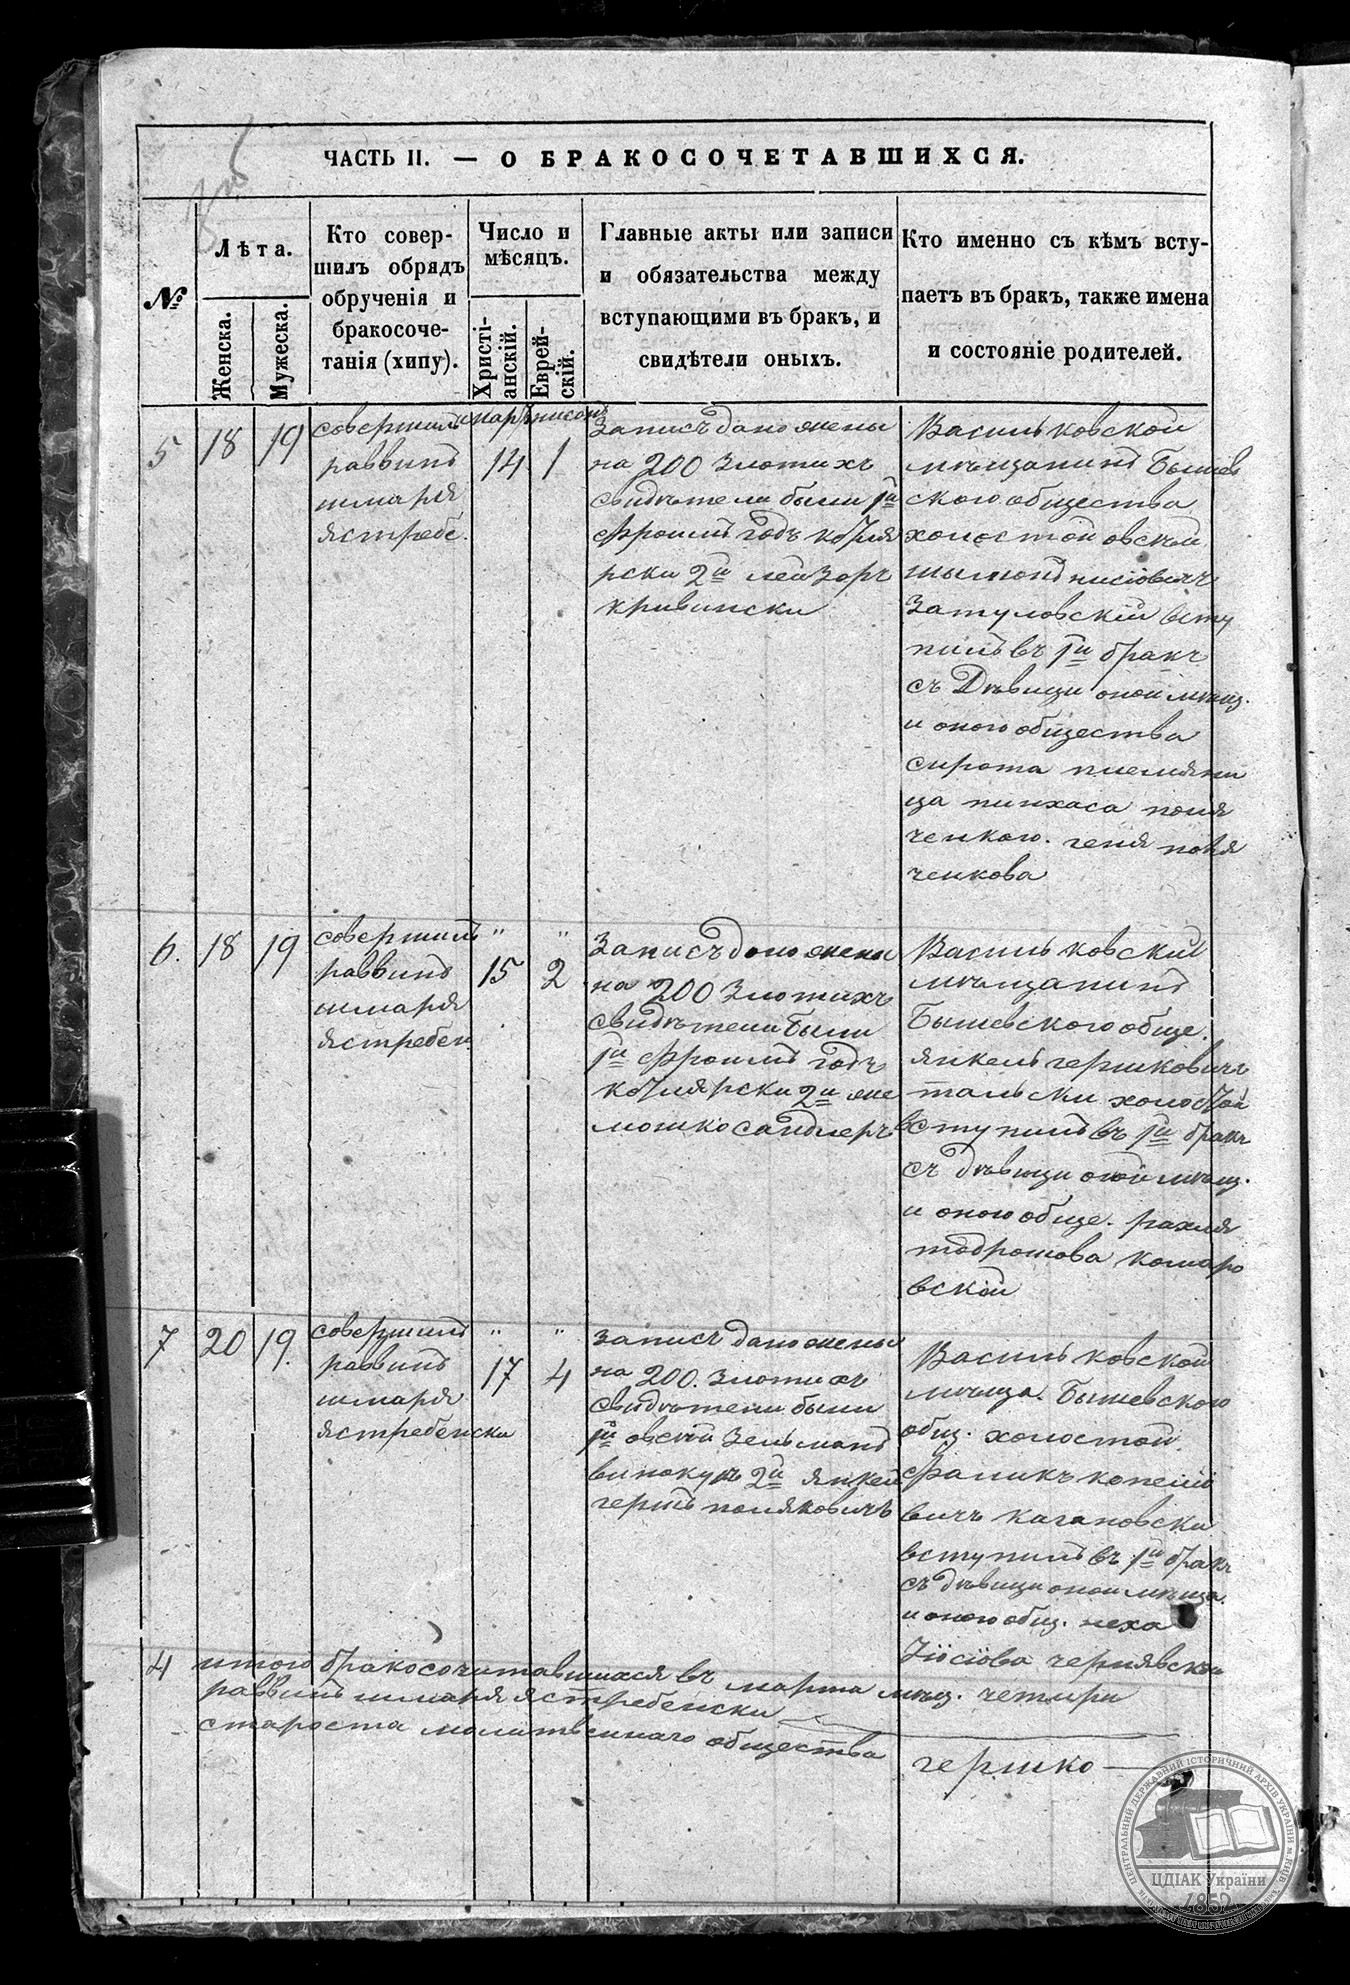 ЧАСТЬ II. — О БРАКОСОЧЕТАВШИХСЯ.
№
Лѣта.
Женска.
Мужеска.
Кто совер-
шилъ обрядъ
обрученія и
бракосоче-
танія (хипу).
Число и
мѣсяцъ.
Христі-
анскій.
Еврей-
скій.
Главные акты или записи
и обязательства между
вступающими въ бракъ, и
свидѣтели оныхъ.
Кто именно съ кѣмъ всту-
паетъ въ бракъ, также имена
и состояніе родителей.
5
18
19
совершилъ
раввинъ
шмаря
ястребе.
мартъ
14
нисонъ
1
Записъ дано жены
на 200 злотихъ
свидѣтели были 1й
фроимъ годъ котля
рски 2й лейзоръ
кривински
Васильковской
мѣщанинъ Бышев
ского общества
холостой овсѣй
шлиомъ нисіовичъ
Затуловскій всту
пилъ въ 1й бракъ
съ Дѣвици оной мѣщ.
и оного общества
сирота племяни
ца пинхаса поля
ченкого. геня поля
ченкова
6.
18
19
совершилъ
раввинъ
шмаря
ястребен.
"
15
"
2
Записъ дано жены
на 200 Злотихъ
свидѣтели были
1й фроимъ годъ
котлярски 2й
мошко сандлеръ
Васильковский
мѣщанинъ
Бышевского обще.
янкель гершковичъ
тальски холостой
вступилъ въ 1й бракъ
съ дѣвици оной мѣщ.
и оного обще. рахля
тодрошова комаро
вской
7
20
19.
совершилъ
раввинъ
шмаря
ястребенски
"
17
"
4
записъ дано жены
на 200. злотихъ
свидѣтели были
1й овсій зельманъ
винокуръ 2й янкел
гершъ поляковичъ
Васильковской
мѣща. Бышевского
общ. холостой.
фаликъ копелио
вичъ кагановски
вступилъ въ 1й бракъ
съ дѣвици оной мѣща.
и оного общ. неха
Иосіова чернявской
4 итого бракосочитавшихся въ марта мѣц. четыри
раввинъ шмаря ястребенски
староста молитвенного общества
гершко
ЦЕНТРАЛЬНИЙ ДЕРЖАВНИЙ ІСТОРИЧНИЙ АРХІВ УКРАЇНИ м. КИЇВ
ЦДІАК України
1852